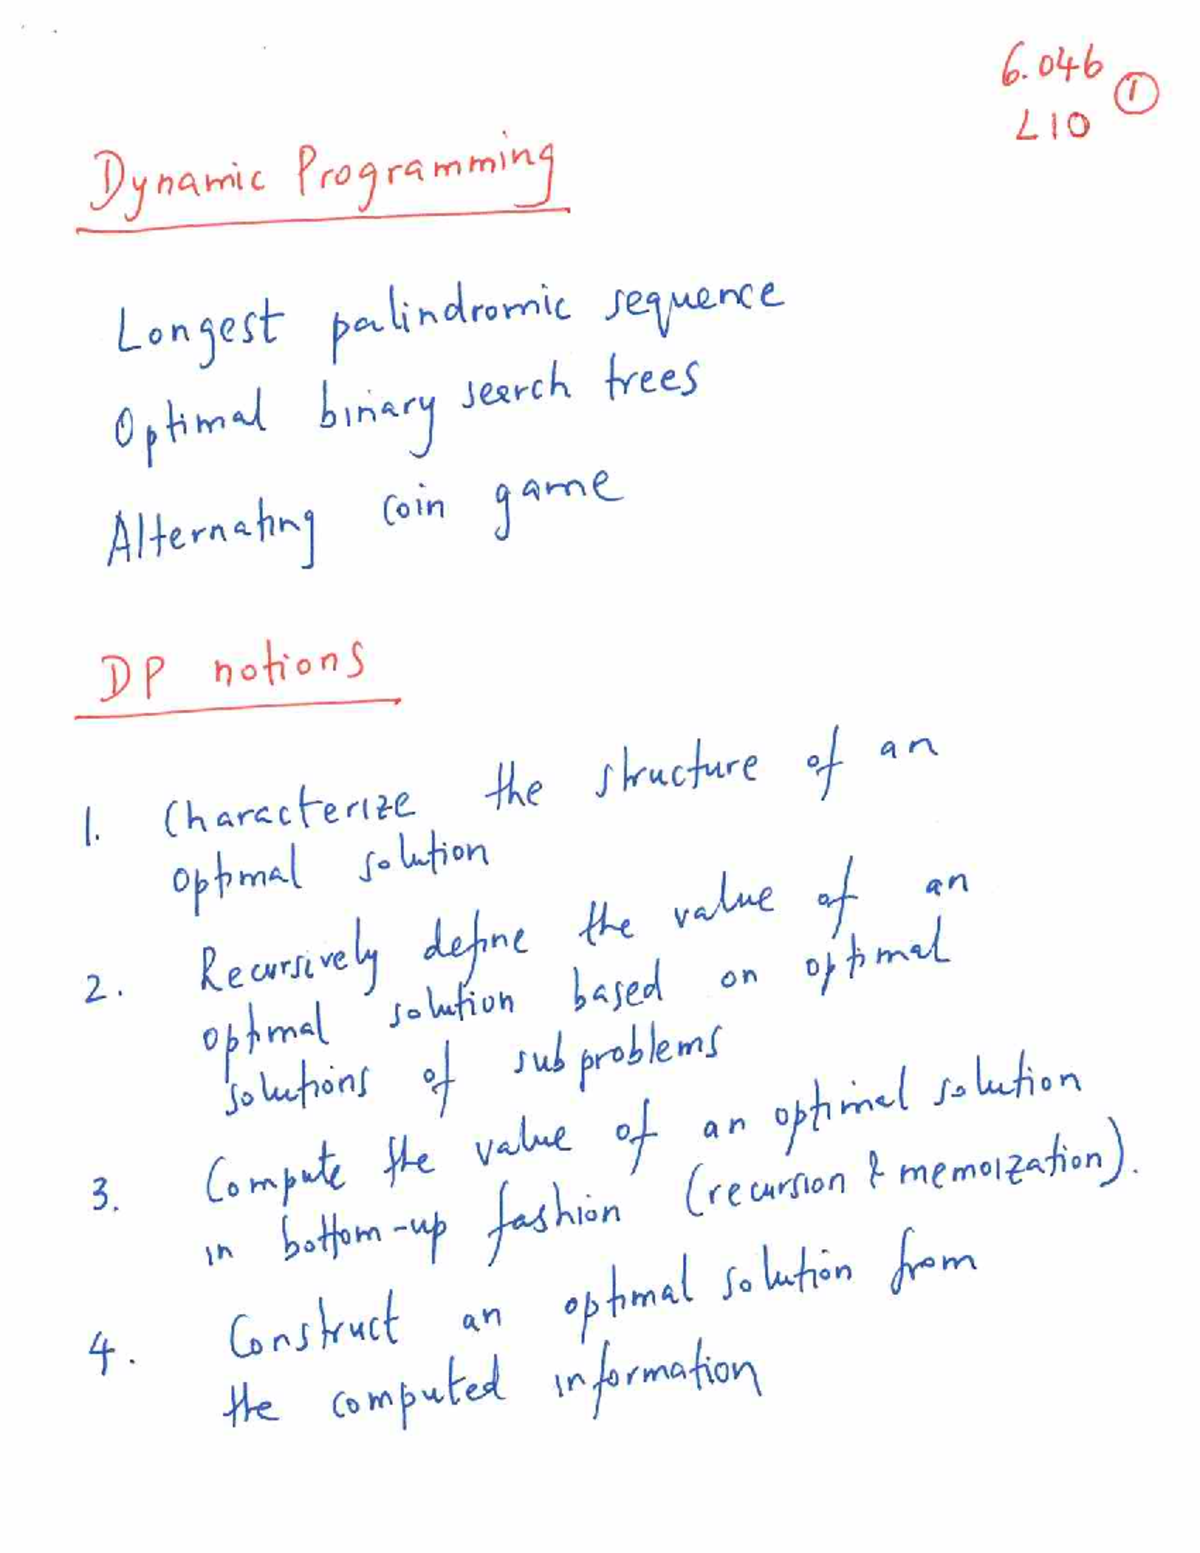 6.046
L10 ①
Dynamic Programming
Longest palindromic sequence
Optimal binary search trees
Alternating coin game
DP notions
1. Characterize the structure of an
optimal solution
2. Recursively define the value of an
optimal solution based on optimal
solutions of subproblems
3. Compute the value of an optimal solution
in bottom-up fashion (recursion & memoization).
4. Construct an optimal solution from
the computed information